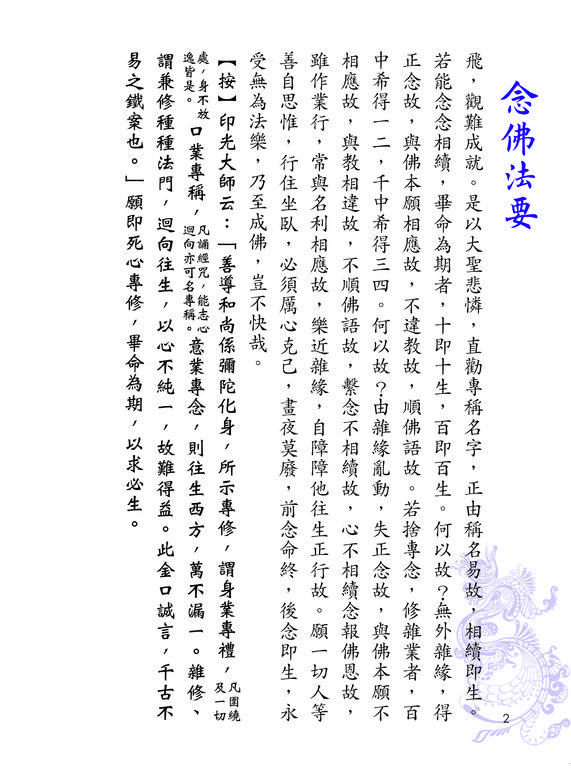 念佛法要
飛，觀難成就。是以大聖悲憐，直勸專稱名字，正由稱名易故，相續即生。
若能念念相續，畢命為期者，十即十生，百即百生。何以故？無外雜緣，得
正念故，與佛本願相應故，不違教故，順佛語故。若捨專念，修雜業者，百
中希得一二，千中希得三四。何以故？由雜緣亂動，失正念故，與佛本願不
相應故，與教相違故，不順佛語故，繫念不相續故，心不相續念報佛恩故，
雖作業行，常與名利相應故，樂近雜緣，自障障他往生正行故。願一切人等
善自思惟，行住坐臥，必須厲心克己，晝夜莫廢，前念命終，後念即生，永
受無為法樂，乃至成佛，豈不快哉。
【按】印光大師云：「善導和尚係彌陀化身，所示專修，謂身業專禮，凡圍繞及一切
處，身不放逸皆是。口業專稱，凡誦經咒，能志心迴向亦可名專稱。意業專念，則往生西方，萬不漏一。雜修、
謂兼修種種法門，迴向往生，以心不純一，故難得益。此金口誠言，千古不
易之鐵案也。」願即死心專修，畢命為期，以求必生。
2